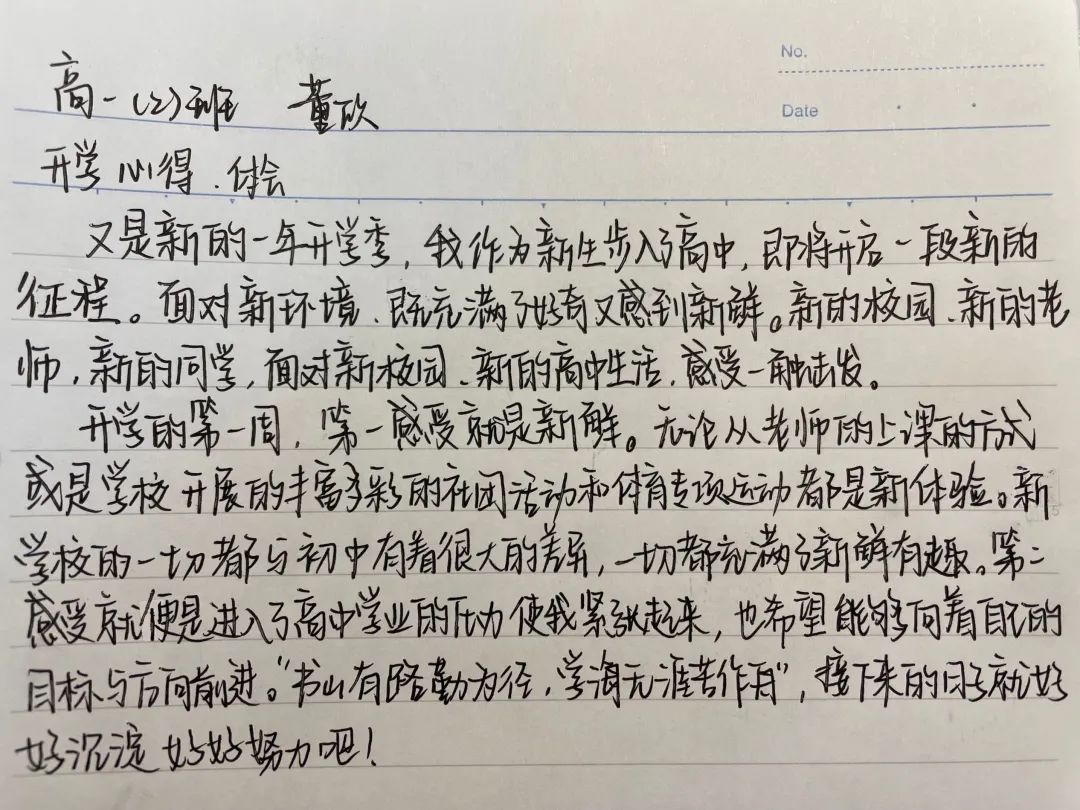 No.
Date
高一(2)班 董欣
开学心得、体会
又是新的一年开学季，我作为新生步入了高中，即将开启一段新的
征程。面对新环境、既充满了好奇又感到新鲜。新的校园、新的老
师，新的同学，面对新校园、新的高中生活，感受一触击发。
开学的第一周，第一感受就是新鲜。无论从老师的上课的方式
或是学校开展的丰富多彩的社团活动和体育专项运动都是新体验。新
学校的一切都与初中有着很大的差异，一切都充满了新鲜有趣。第二
感受就便是进入了高中学业的压力使我紧张起来，也希望能够向着自己的
目标与方向前进。“书山有路勤为径，学海无涯苦作舟”，接下来的日子就好
好沉淀 好好努力吧！